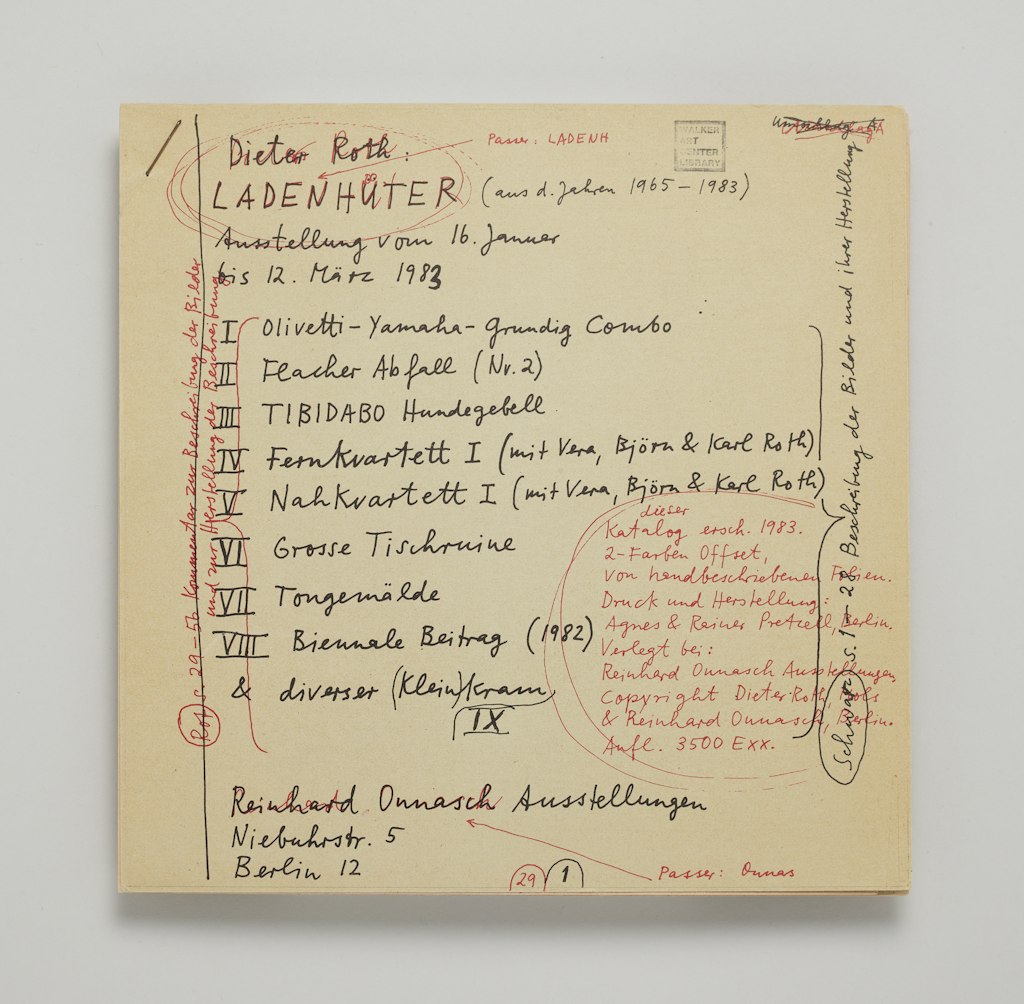 Dieter Roth:
Passer: LADENH
WALKER
ART
CENTER
LIBRARY
Umschlag A
LADENHÜTER (aus d. Jahren 1965 – 1983)
Ausstellung vom 16. Januar
bis 12. März 1983
I Olivetti – Yamaha – Grundig Combo
II Flacher Abfall (Nr. 2)
III TIBIDABO Hundegebell
IV Fernkvartett I (mit Vera, Björn & Karl Roth)
V Nahkvartett I (mit Vera, Björn & Karl Roth)
VI Grosse Tischruine
VII Tongemälde
VIII Biennale Beitrag (1982)
& diverser (Klein)kram
IX
dieser
Katalog ersch. 1983.
2-Farben Offset,
von handbeschriebenen Folien.
Druck und Herstellung:
Agnes & Rainer Pretzell, Berlin.
Verlegt bei:
Reinhard Onnasch Ausstellungen
Copyright Dieter Roth,
& Reinhard Onnasch, Berlin.
Aufl. 3500 Exx.
Reinhard Onnasch Ausstellungen
Niebuhrstr. 5
Berlin 12
Passer: Onnas
29 1
Rot s. 29 – 56 Kommentar zur Beschreibung der Bilder
und zur Herstellung der Beschreibung
Schwarz s. 1 – 28 Beschreibung der Bilder und ihrer Herstellung